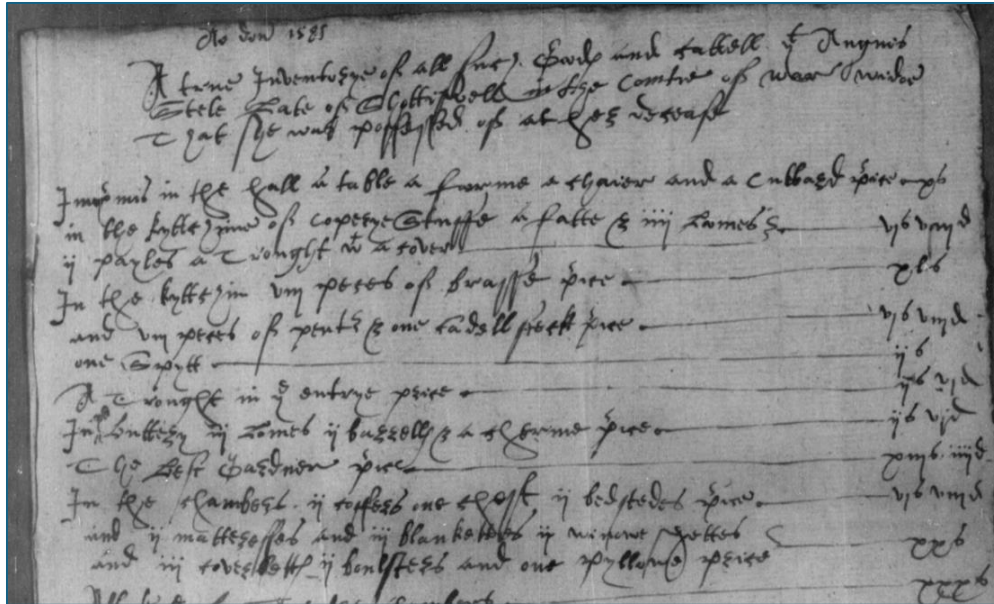 Ao dom 1585
A trewe Inventorye of all suche Goods and Cattell yt Angnis
Stele Late of Shottiswell in the Comtie of war widoe
That she was possessed of at her decease
Imprimis in the hall a table a forme a chaier and a Cubbard price xs
in the kyttchine of Coperye Stuffe a fatte & iiii Lomes & vis viiid
ii payles a Trought wt a cover
In the kyttchin viii peces of brasse price xls
and viii peces of pewter & one Candell stick price vis viiid
one Spytt iis
A Trought in ye entrye price iis vid
In ye buttery iii Lomes ii barrells & a cherme price iis vid
The Best Gardner price xiiis iiiid
In the chambers ii coffers one chest ii bedstedes price vis viiid
and ii mattresses and iii blankettes ii winowe shettes
and iii coverletts ii boulsters and one pyllowe price xxs
xxxs